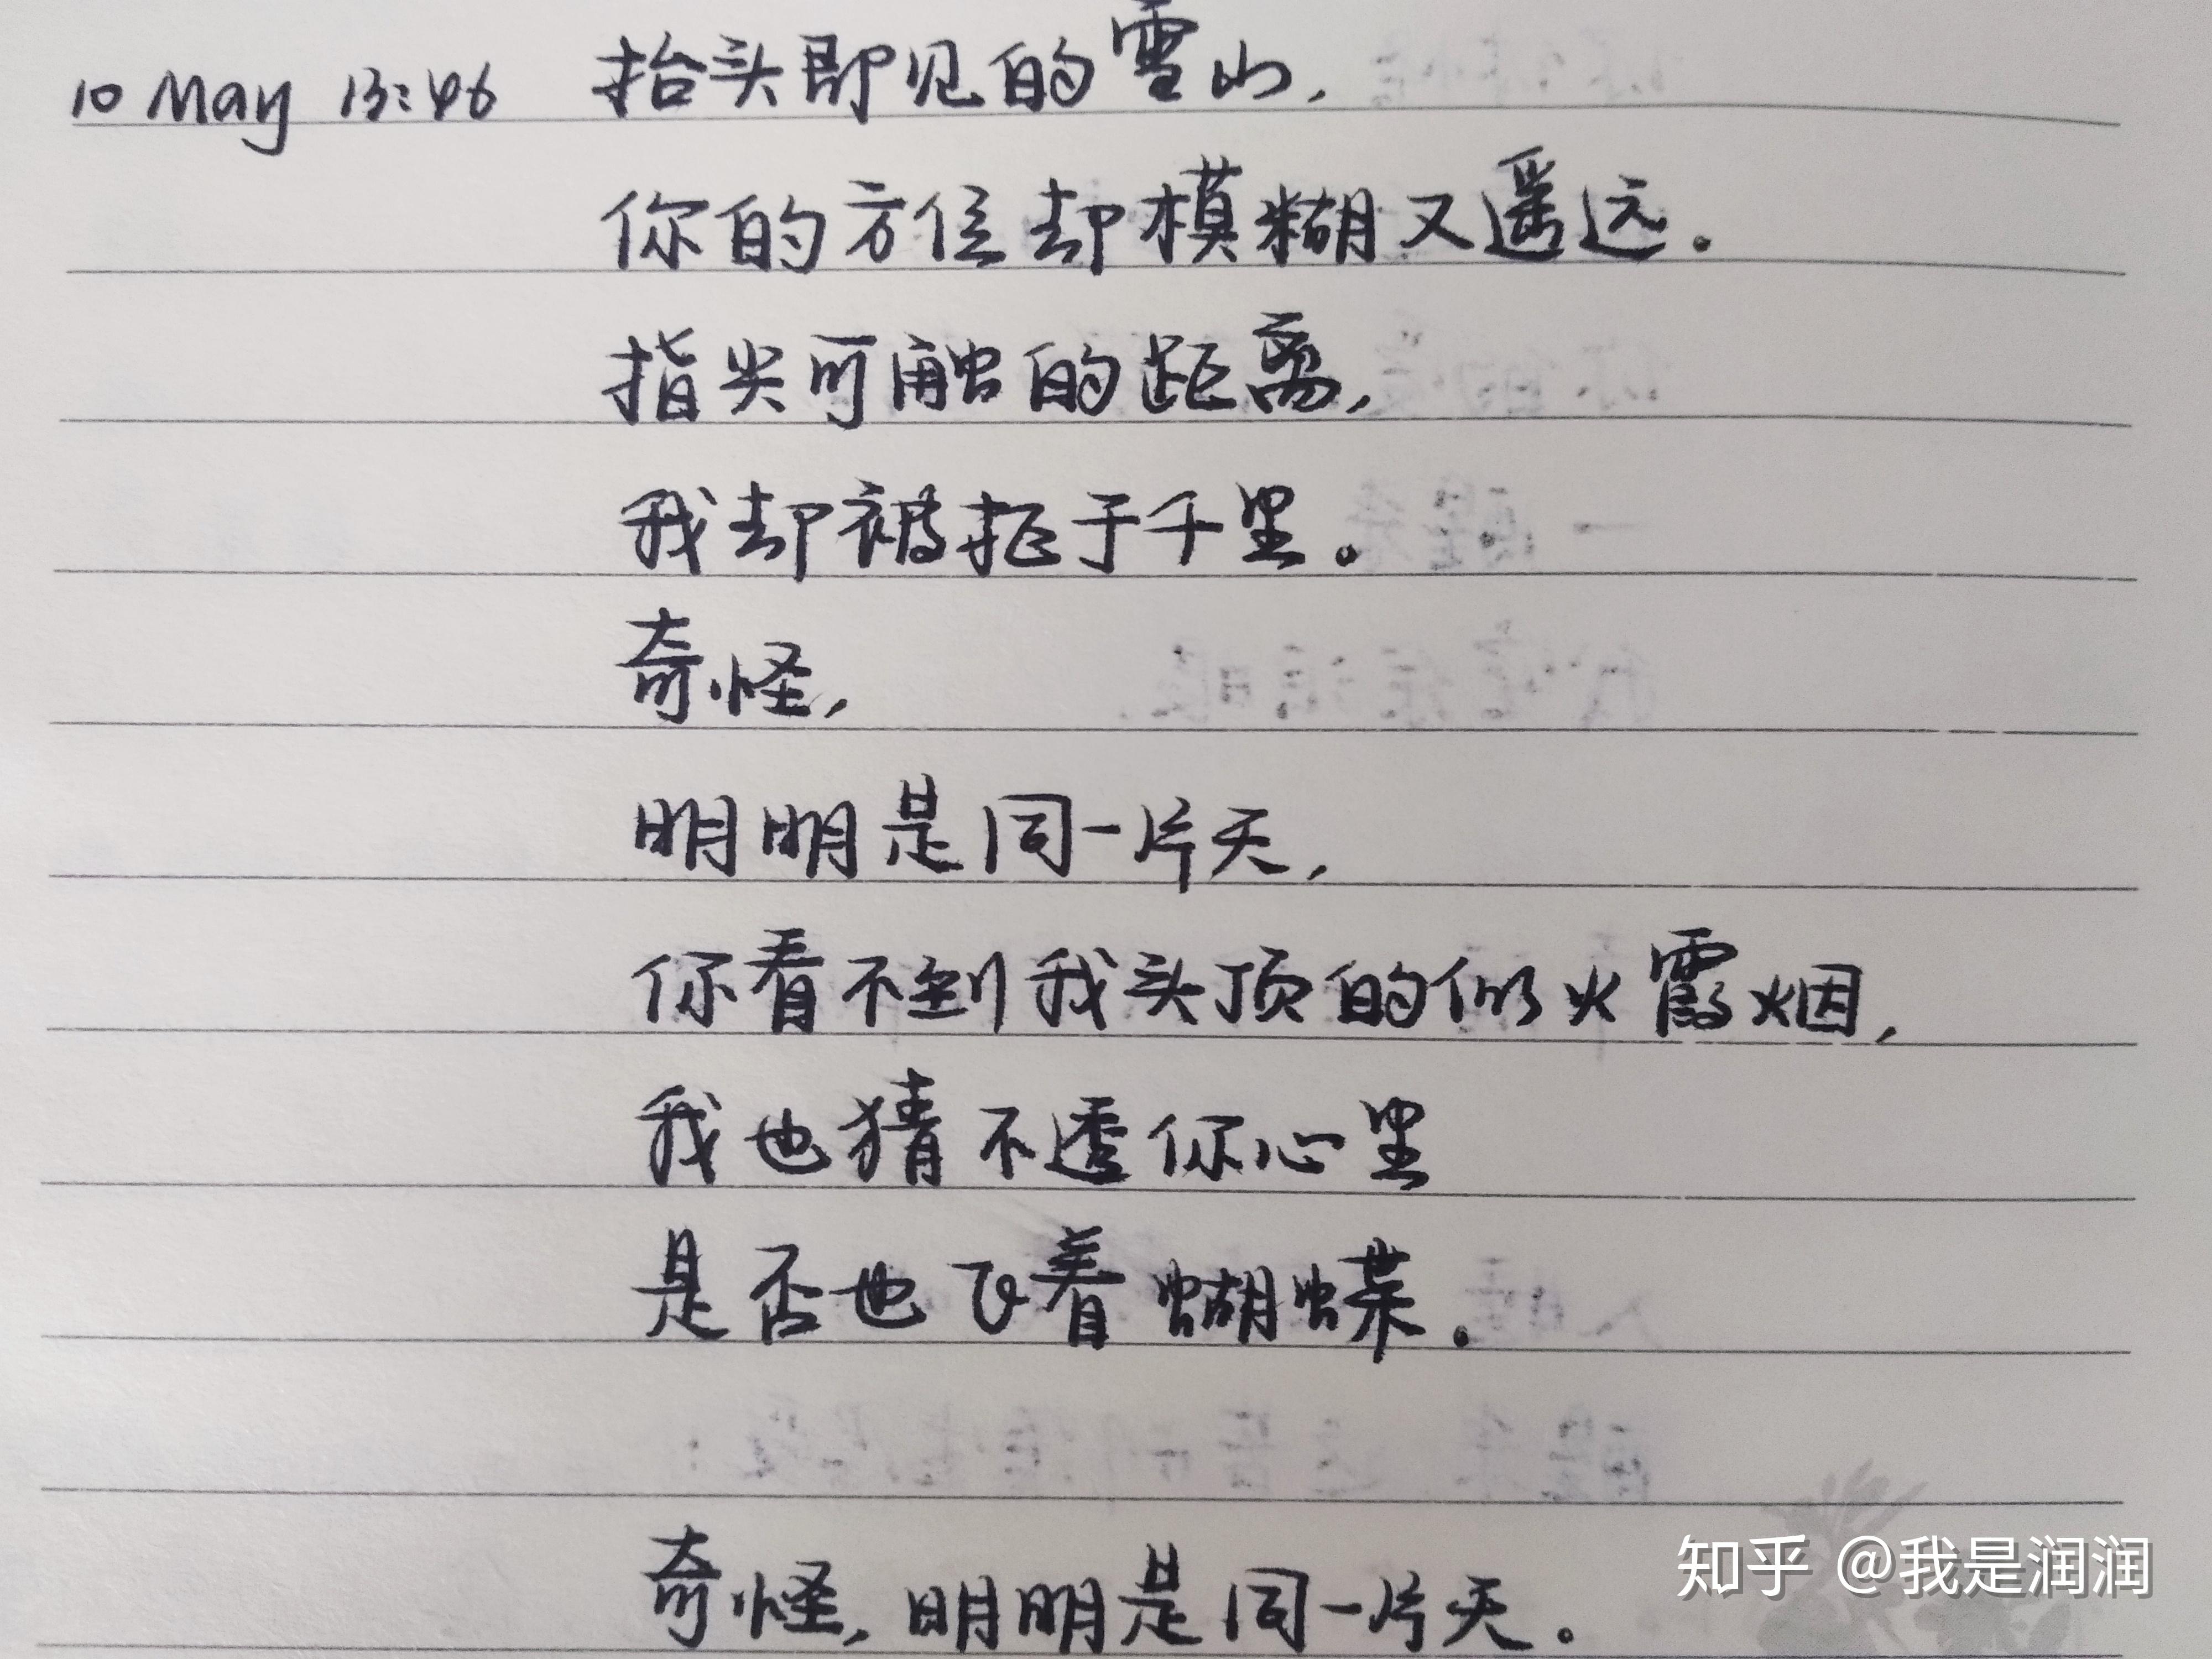 10 May 13:46 抬头即见的雪山，
你的方位却模糊又遥远。
指尖可触的距离，
我却被拒于千里。
奇怪，
明明是同一片天，
你看不到我头顶的似火霞烟，
我也猜不透你心里
是否也飞着蝴蝶。
奇怪，明明是同一片天。
知乎 @我是润润